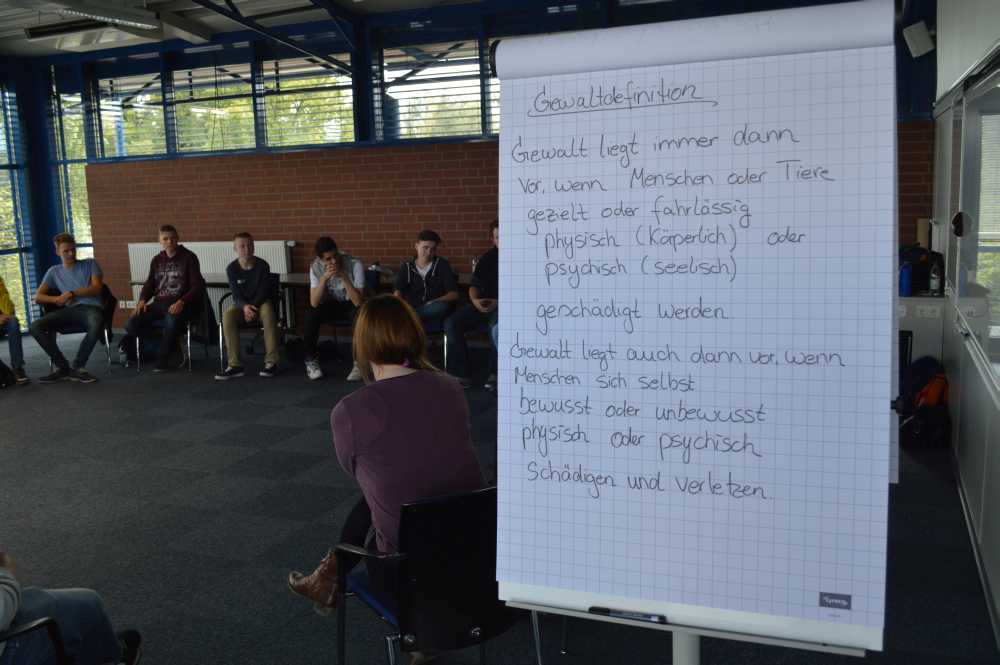 Gewaltdefinition
Gewalt liegt immer dann
vor, wenn Menschen oder Tiere
gezielt oder fahrlässig
physisch (Körperlich) oder
psychisch (seelisch)
geschädigt werden
Gewalt liegt auch dann vor, wenn
Menschen sich selbst
bewusst oder unbewusst
physisch oder psychisch
Schädigen und verletzen.